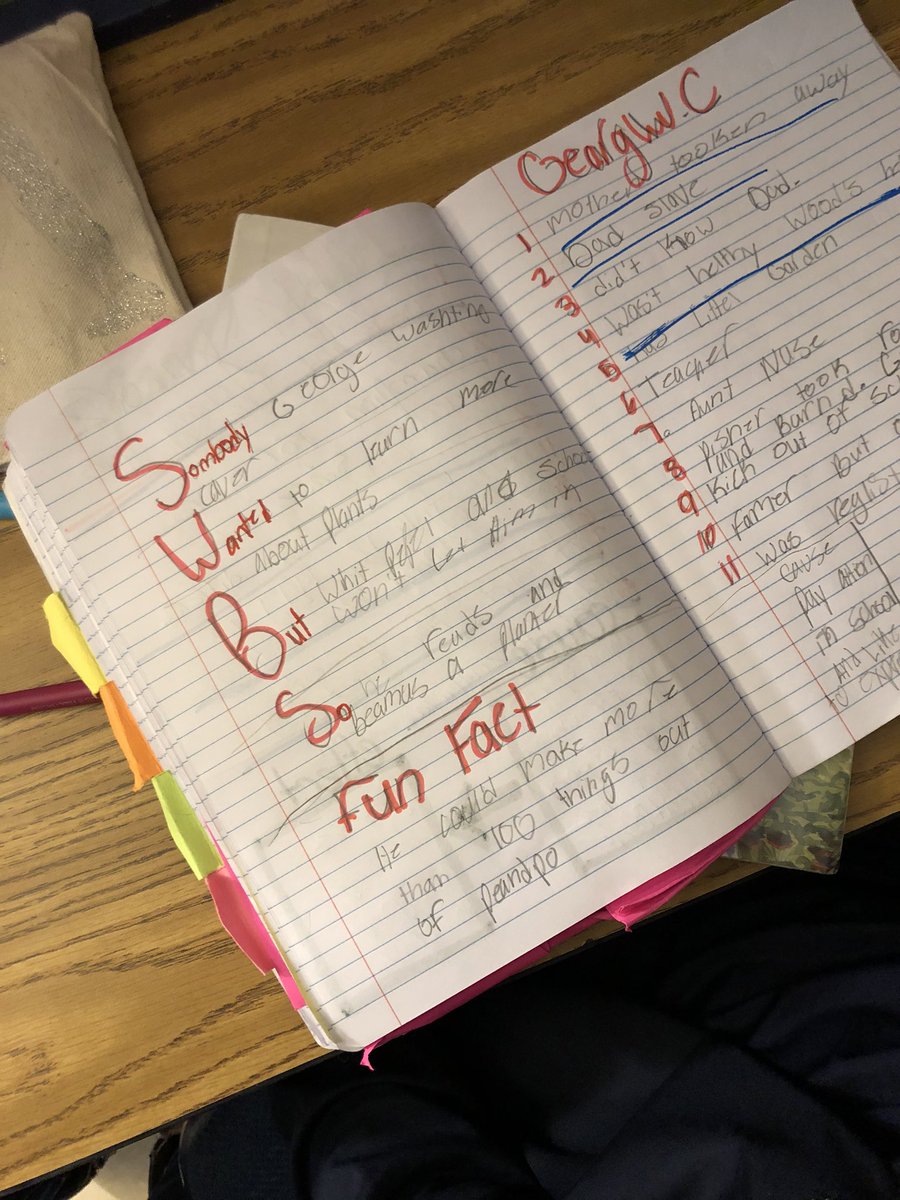 Sombody George Washting
Carver
Wanted to kurn more
about plants
But whit and school
won't let Him in
So he reads and
beamus a planter
Fun Fact
He could make more
than 100 things out
of peandpo
GeorgW.C
1 mother tooken away
2 Dad slave
3 didn't know Dad.
4 Wasit helthy Wood's
5 has Littel Garden
6 Teacher
7. Aunt
8 took
Fund Barnd.
9 Kick out of
10 Famer But
11 was
cause
pay
in school
and